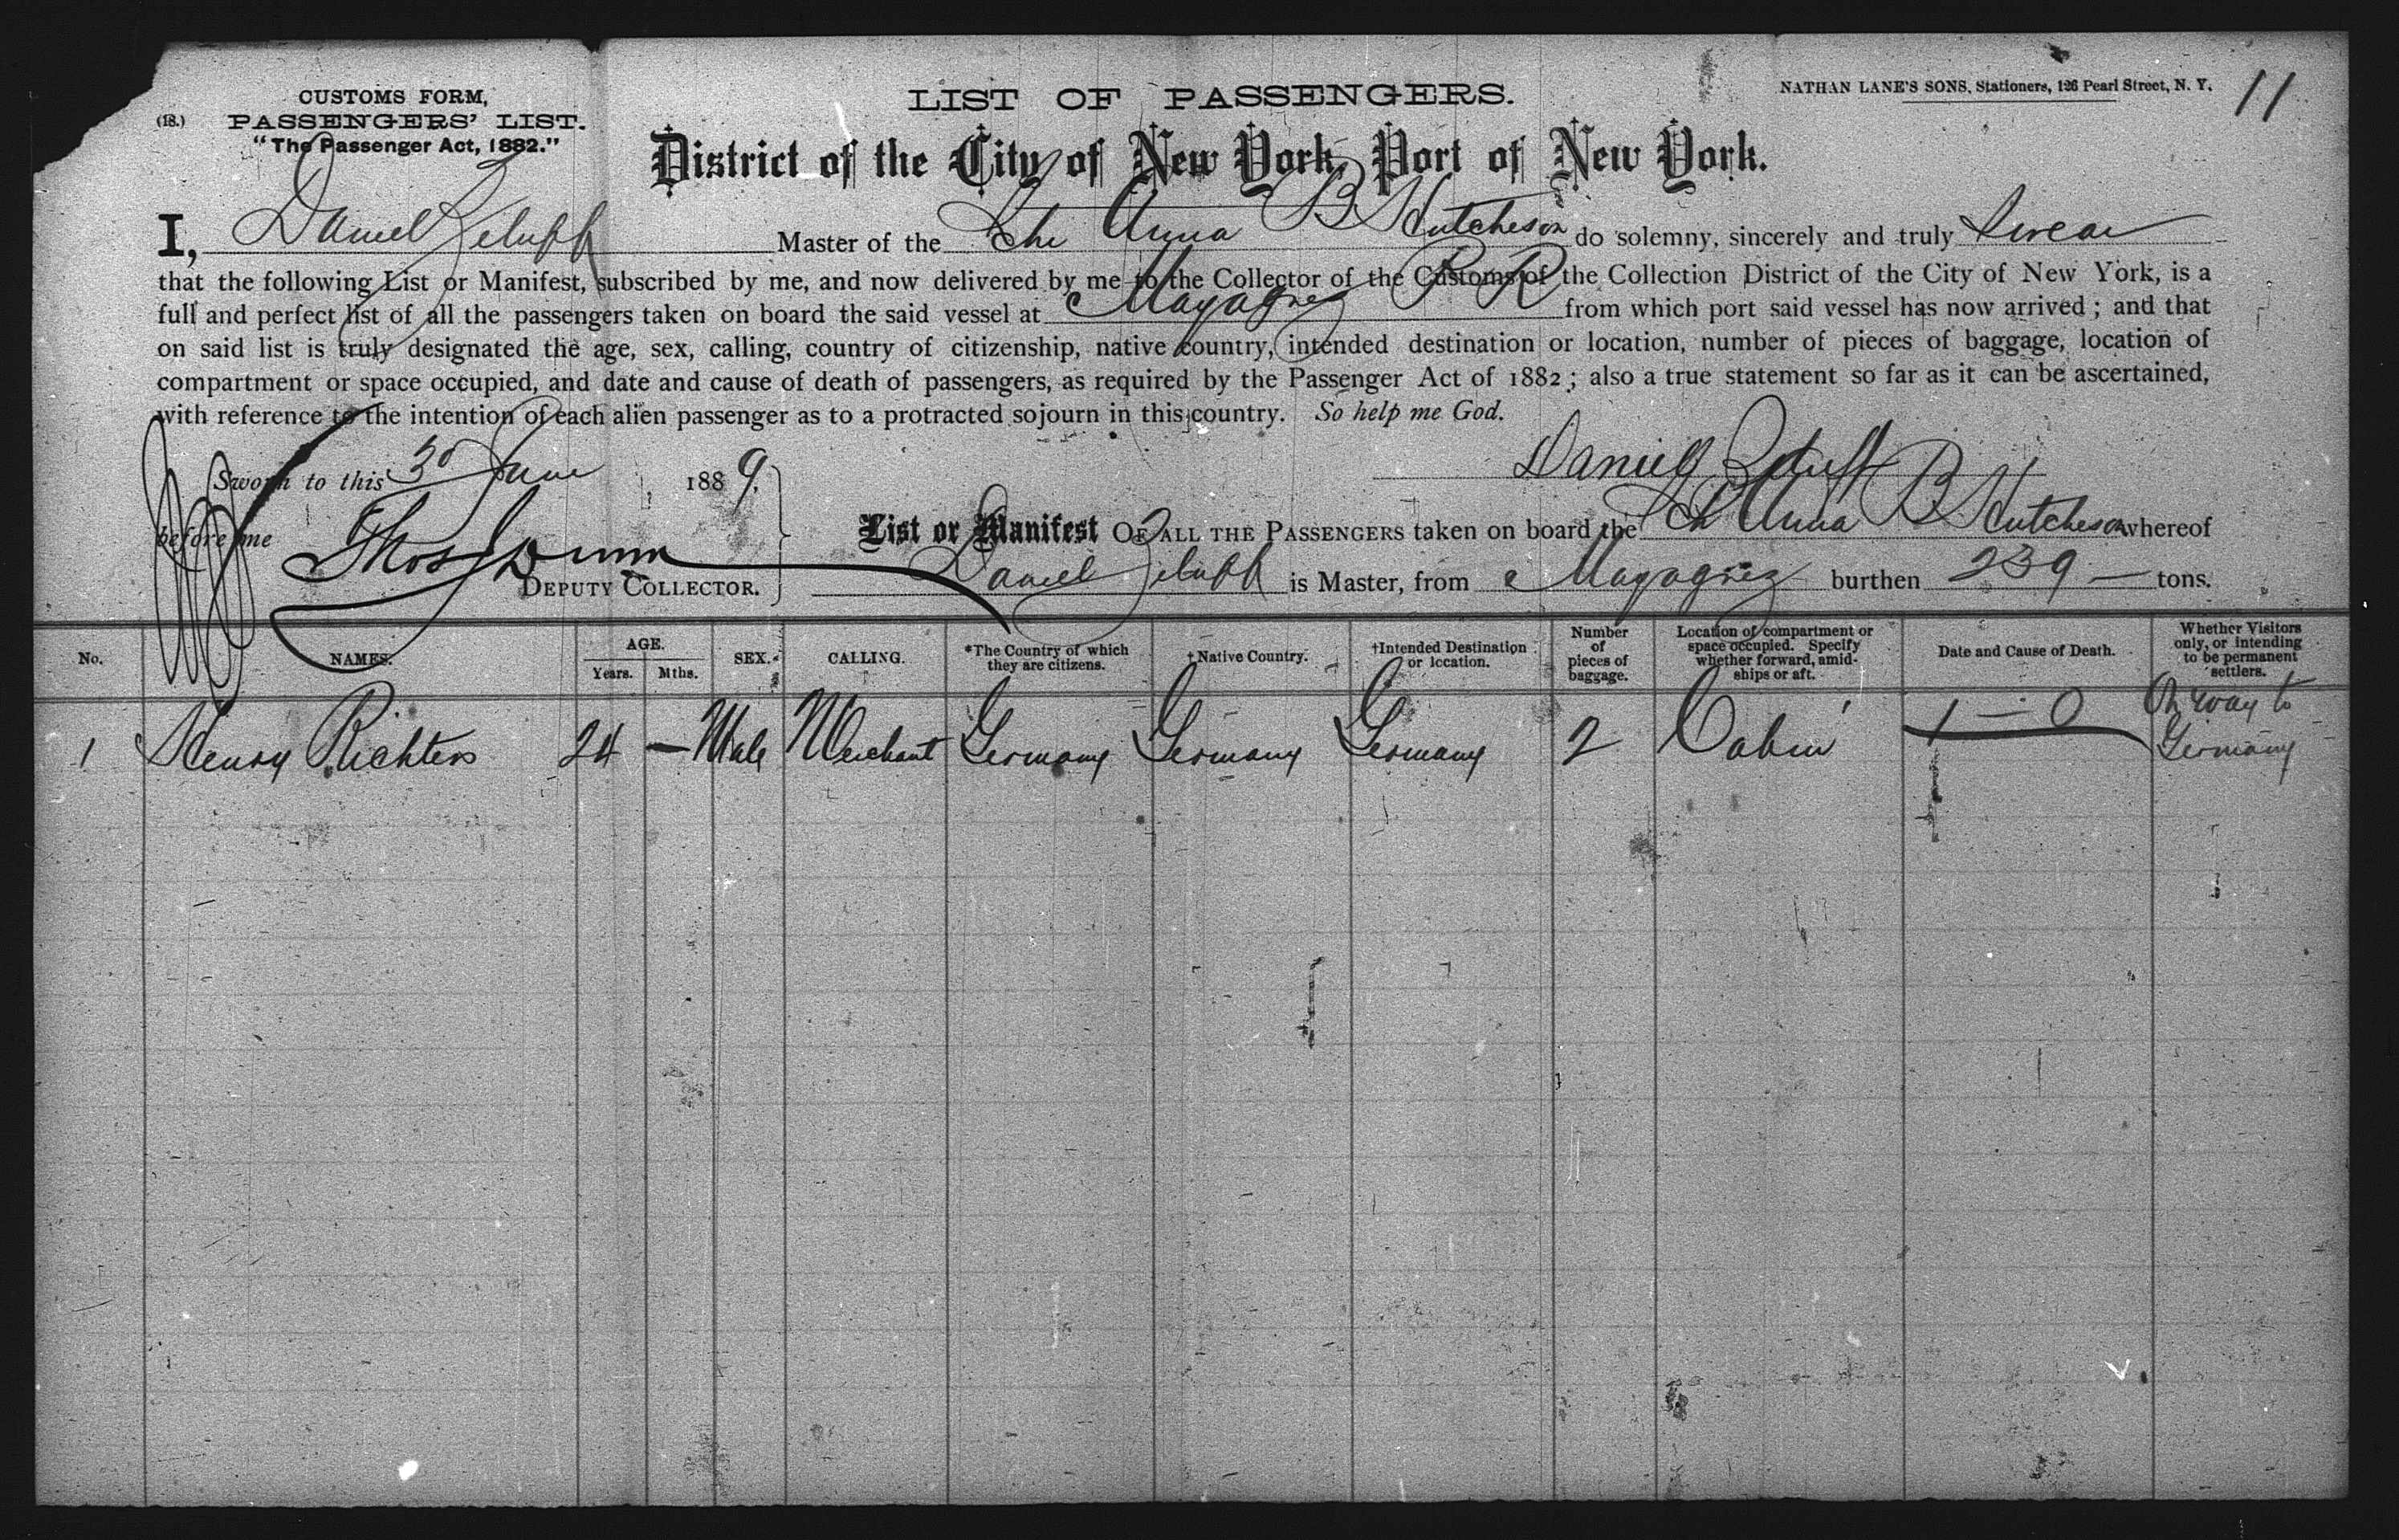 CUSTOMS FORM,
(18.) PASSENGERS' LIST.
"The Passenger Act, 1882."
LIST OF PASSENGERS.
NATHAN LANE'S SONS, Stationers, 126 Pearl Street, N. Y.
11
District of the City of New York, Port of New York.
I, Daniel Master of the Sch Anna B Hutcheson do solemny, sincerely and truly Swear
that the following List or Manifest, subscribed by me, and now delivered by me to the Collector of the Customs of the Collection District of the City of New York, is a
full and perfect list of all the passengers taken on board the said vessel at Mayaguez P R from which port said vessel has now arrived; and that
on said list is truly designated the age, sex, calling, country of citizenship, native country, intended destination or location, number of pieces of baggage, location of
compartment or space occupied, and date and cause of death of passengers, as required by the Passenger Act of 1882; also a true statement so far as it can be ascertained,
with reference to the intention of each alien passenger as to a protracted sojourn in this country. So help me God.
Daniel
Sworn to this June 1889.
before me Thos
DEPUTY COLLECTOR.
List or Manifest OF ALL THE PASSENGERS taken on board the Sch Anna B Hutcheson whereof
Daniel is Master, from Mayaguez burthen 239 — tons.
No. NAMES. AGE. Years. Mths. SEX. CALLING. *The Country of which they are citizens. †Native Country. †Intended Destination or location. Number of pieces of baggage. Location of compartment or space occupied. Specify whether forward, amidships or aft. Date and Cause of Death. Whether Visitors only, or intending to be permanent settlers.
1 Henry Richters 24 — Male Merchant Germany Germany Germany 2 Cabin 1 — 0 On way to Germany